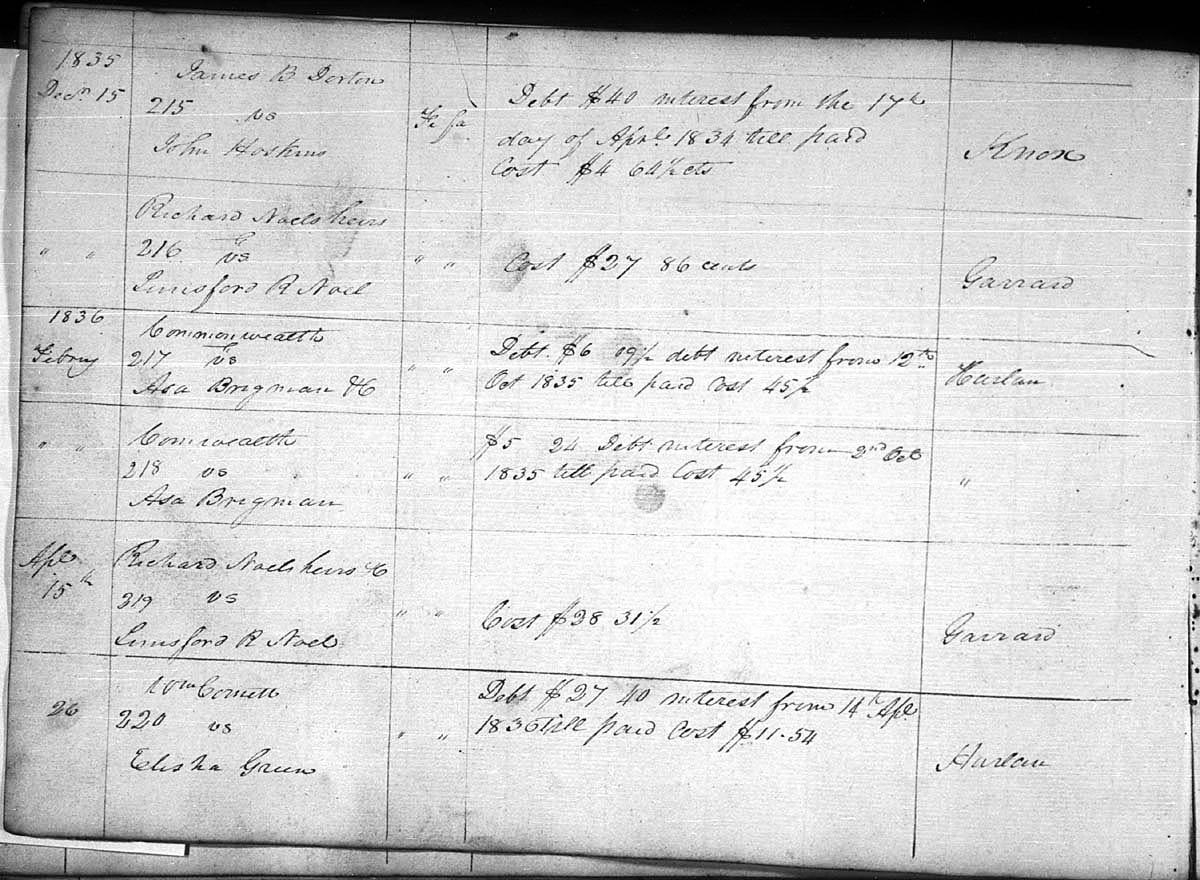 1835
Decr 15
James B Dorton
215 vs
John Hoskins
Fi fa
Debt $40 interest from the 17th
day of Aprl 1834 till paid
Cost $4 64½ cts
Knox
" "
Richard Noels heirs
216 vs
Lunsford R Noel
" "
Cost $27 86 cents
Garrard
1836
Febry
Commonwealth
217 vs
Asa Brigman &C
" "
Debt $6 19½ debt interest from 12th
Oct 1835 till paid Cost 45½
Harlan
" "
Comwealth
218 vs
Asa Brigman
" "
$5 24 Debt interest from 2nd Oct
1835 till paid Cost 45½
"
Apl
15th
Richard Noels heirs &C
219 vs
Lunsford R Noel
" "
Cost $28 31½
Garrard
26
Wm Cornett
220 vs
Elisha Green
" "
Debt $27 40 interest from 14th Apl
1836 till paid Cost $11-54
Harlan